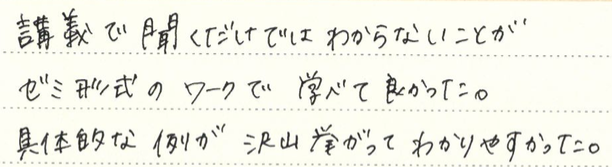 講義で聞くだけではわからないことが
ゼミ形式のワークで学べて良かった。
具体的な例が沢山挙がってわかりやすかった。